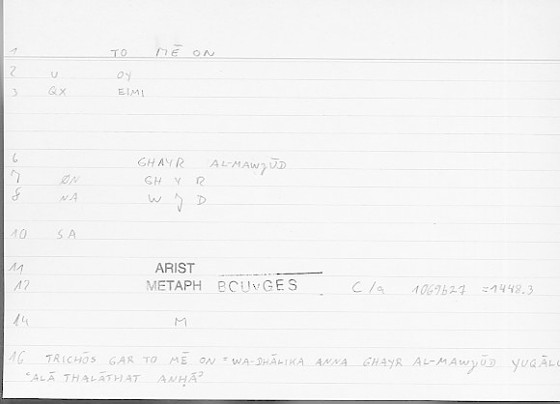 1 TO MĒ ON
2 U OY
3 QX EIMI
6 GHAYR AL-MAWJŪD
7 ØN GH Y R
8 NA W J D
10 SA
11 ARIST
12 METAPH BOUYGES C/a 1069b27 =1448.3
14 M
16 TRICHŌS GAR TO MĒ ON = WA-DHĀLIKA ANNA GHAYR AL-MAWJŪD YUQĀLU
ʿALĀ THALĀTHAT ANḤĀʾ